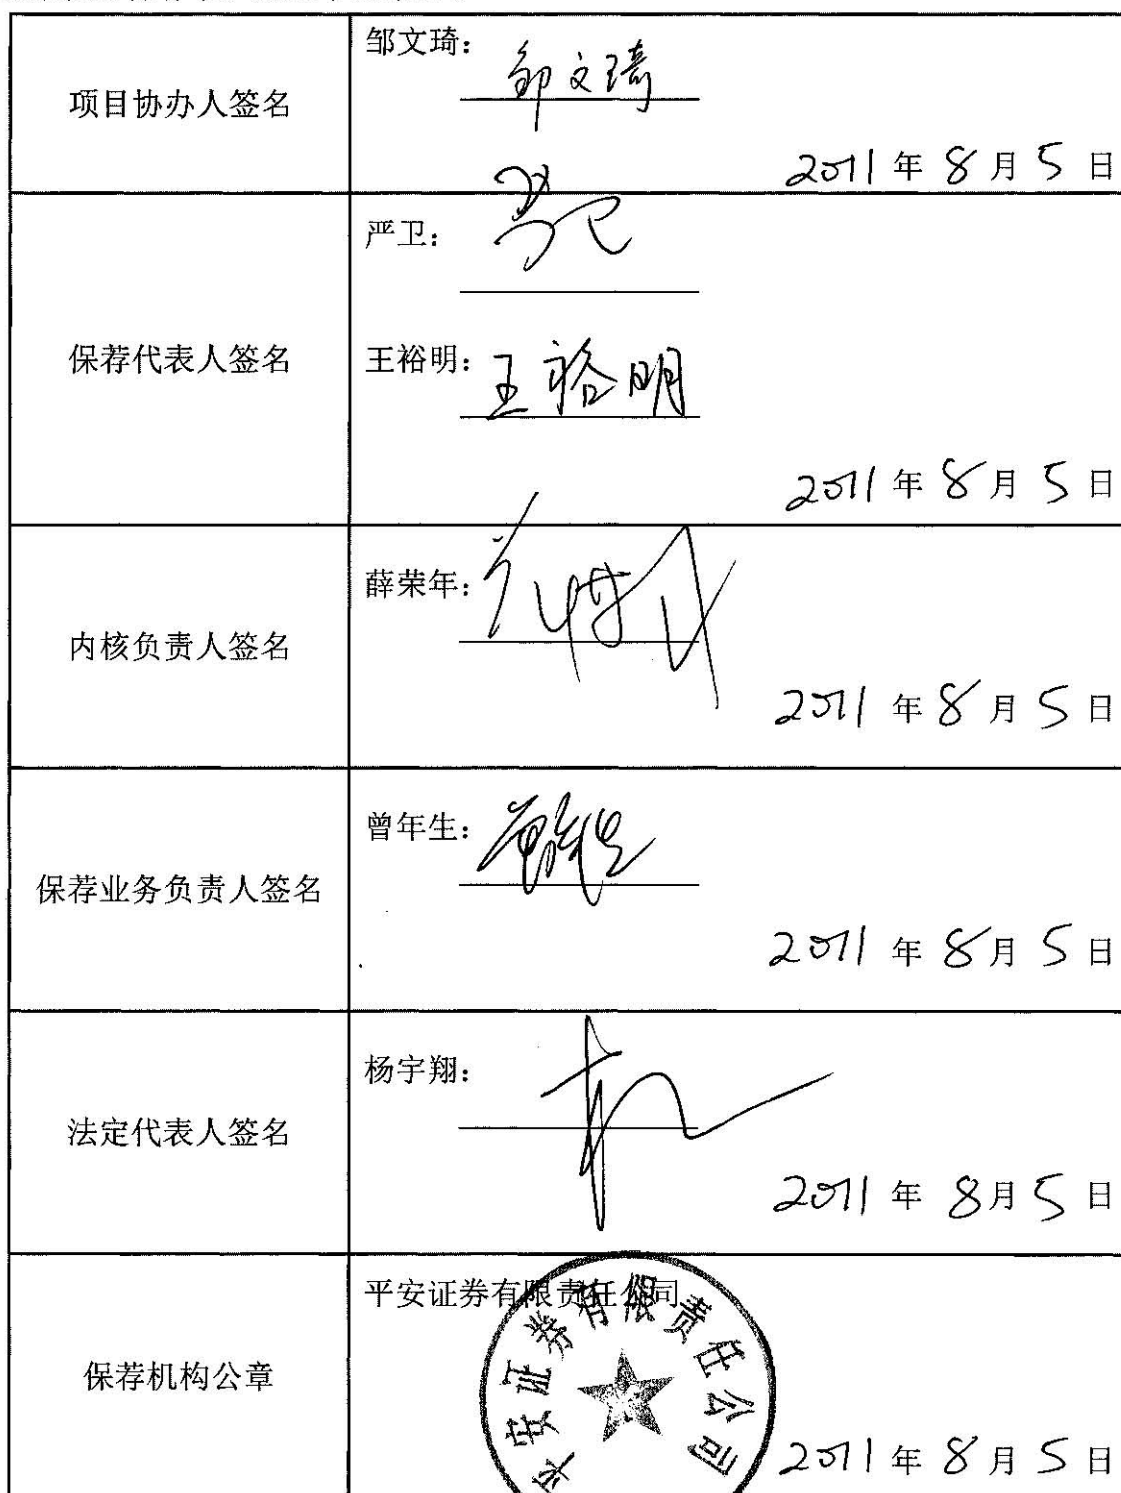 项目协办人签名
邹文琦：
邹文琦
2011年8月5日
保荐代表人签名
严卫：
王裕明：
王裕明
2011年8月5日
内核负责人签名
薛荣年：
2011年8月5日
保荐业务负责人签名
曾年生：
2011年8月5日
法定代表人签名
杨宇翔：
2011年8月5日
保荐机构公章
平安证券有限责任公司
平安证券有限责任公司
2011年8月5日